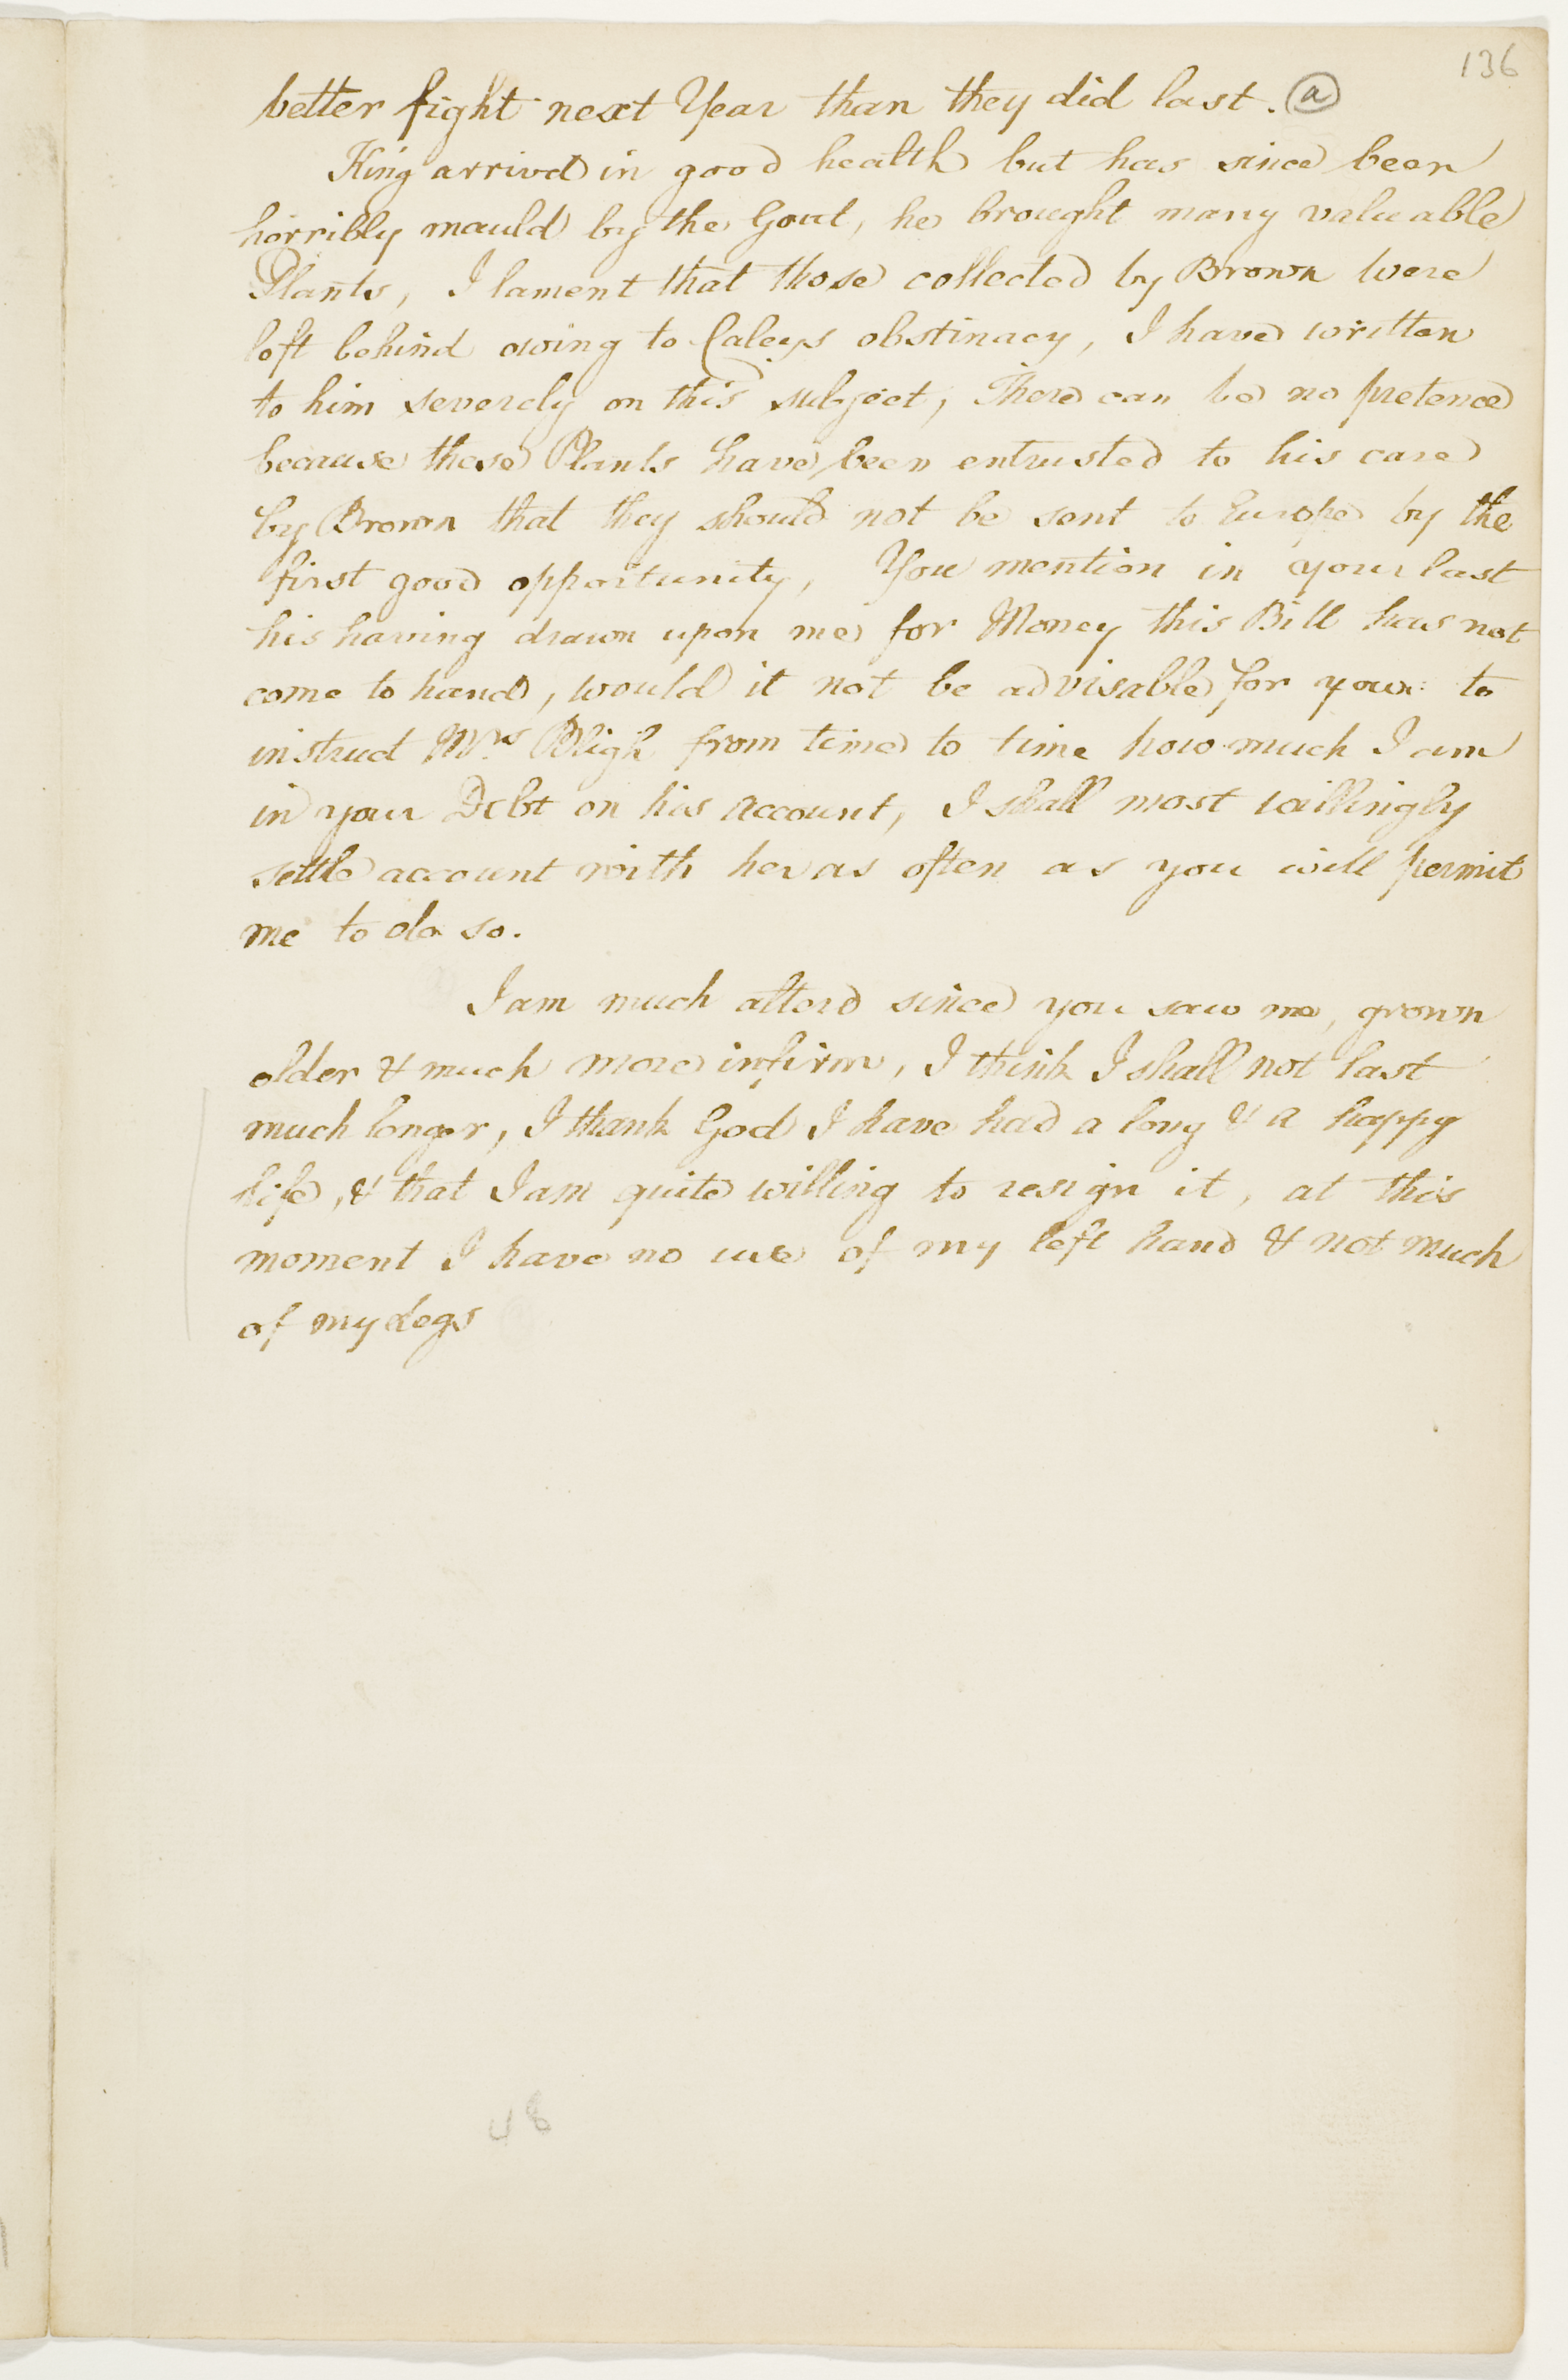 136
better fight next Year than they did last. (a)
King arrivd in good health but has since been
horribly mauld by the Gout, he brought many valuable
Plants, I lament that those collected by Brown were
left behind owing to Caleys obstinacy, I have written
to him severely on this subject, There can be no pretence
because these Plants have been entrusted to his care
by Brown that they should not be sent to Europe by the
first good opportunity, You mention in your last
his having drawn upon me for Money this Bill has not
come to hand, would it not be advisable for you to
instruct Mrs Bligh from time to time how much I am
in your Debt on his account, I shall most willingly
settle account with her as often as you will permit
me to do so.
I am much alterd since you saw me, grown
older & much more infirm, I think I shall not last
much longer, I thank God I have had a long & a happy
life, & that I am quite willing to resign it, at this
moment I have no use of my left hand & not much
of my Legs
48